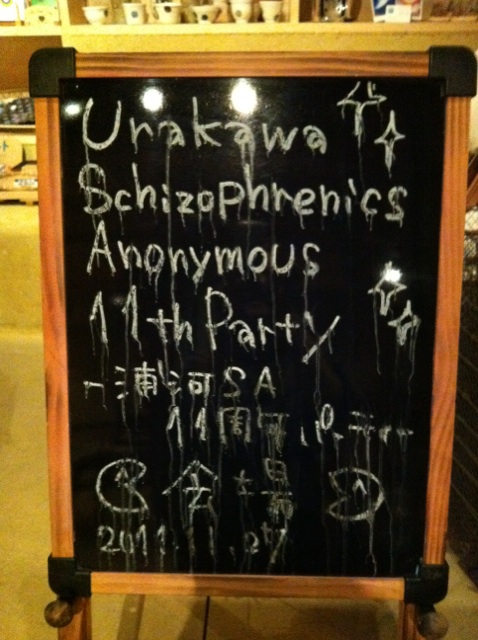 Urakawa
Schizophrenics
Anonymous
11th Party
~浦河SA
11周年パーティー
会場
2011.11.07